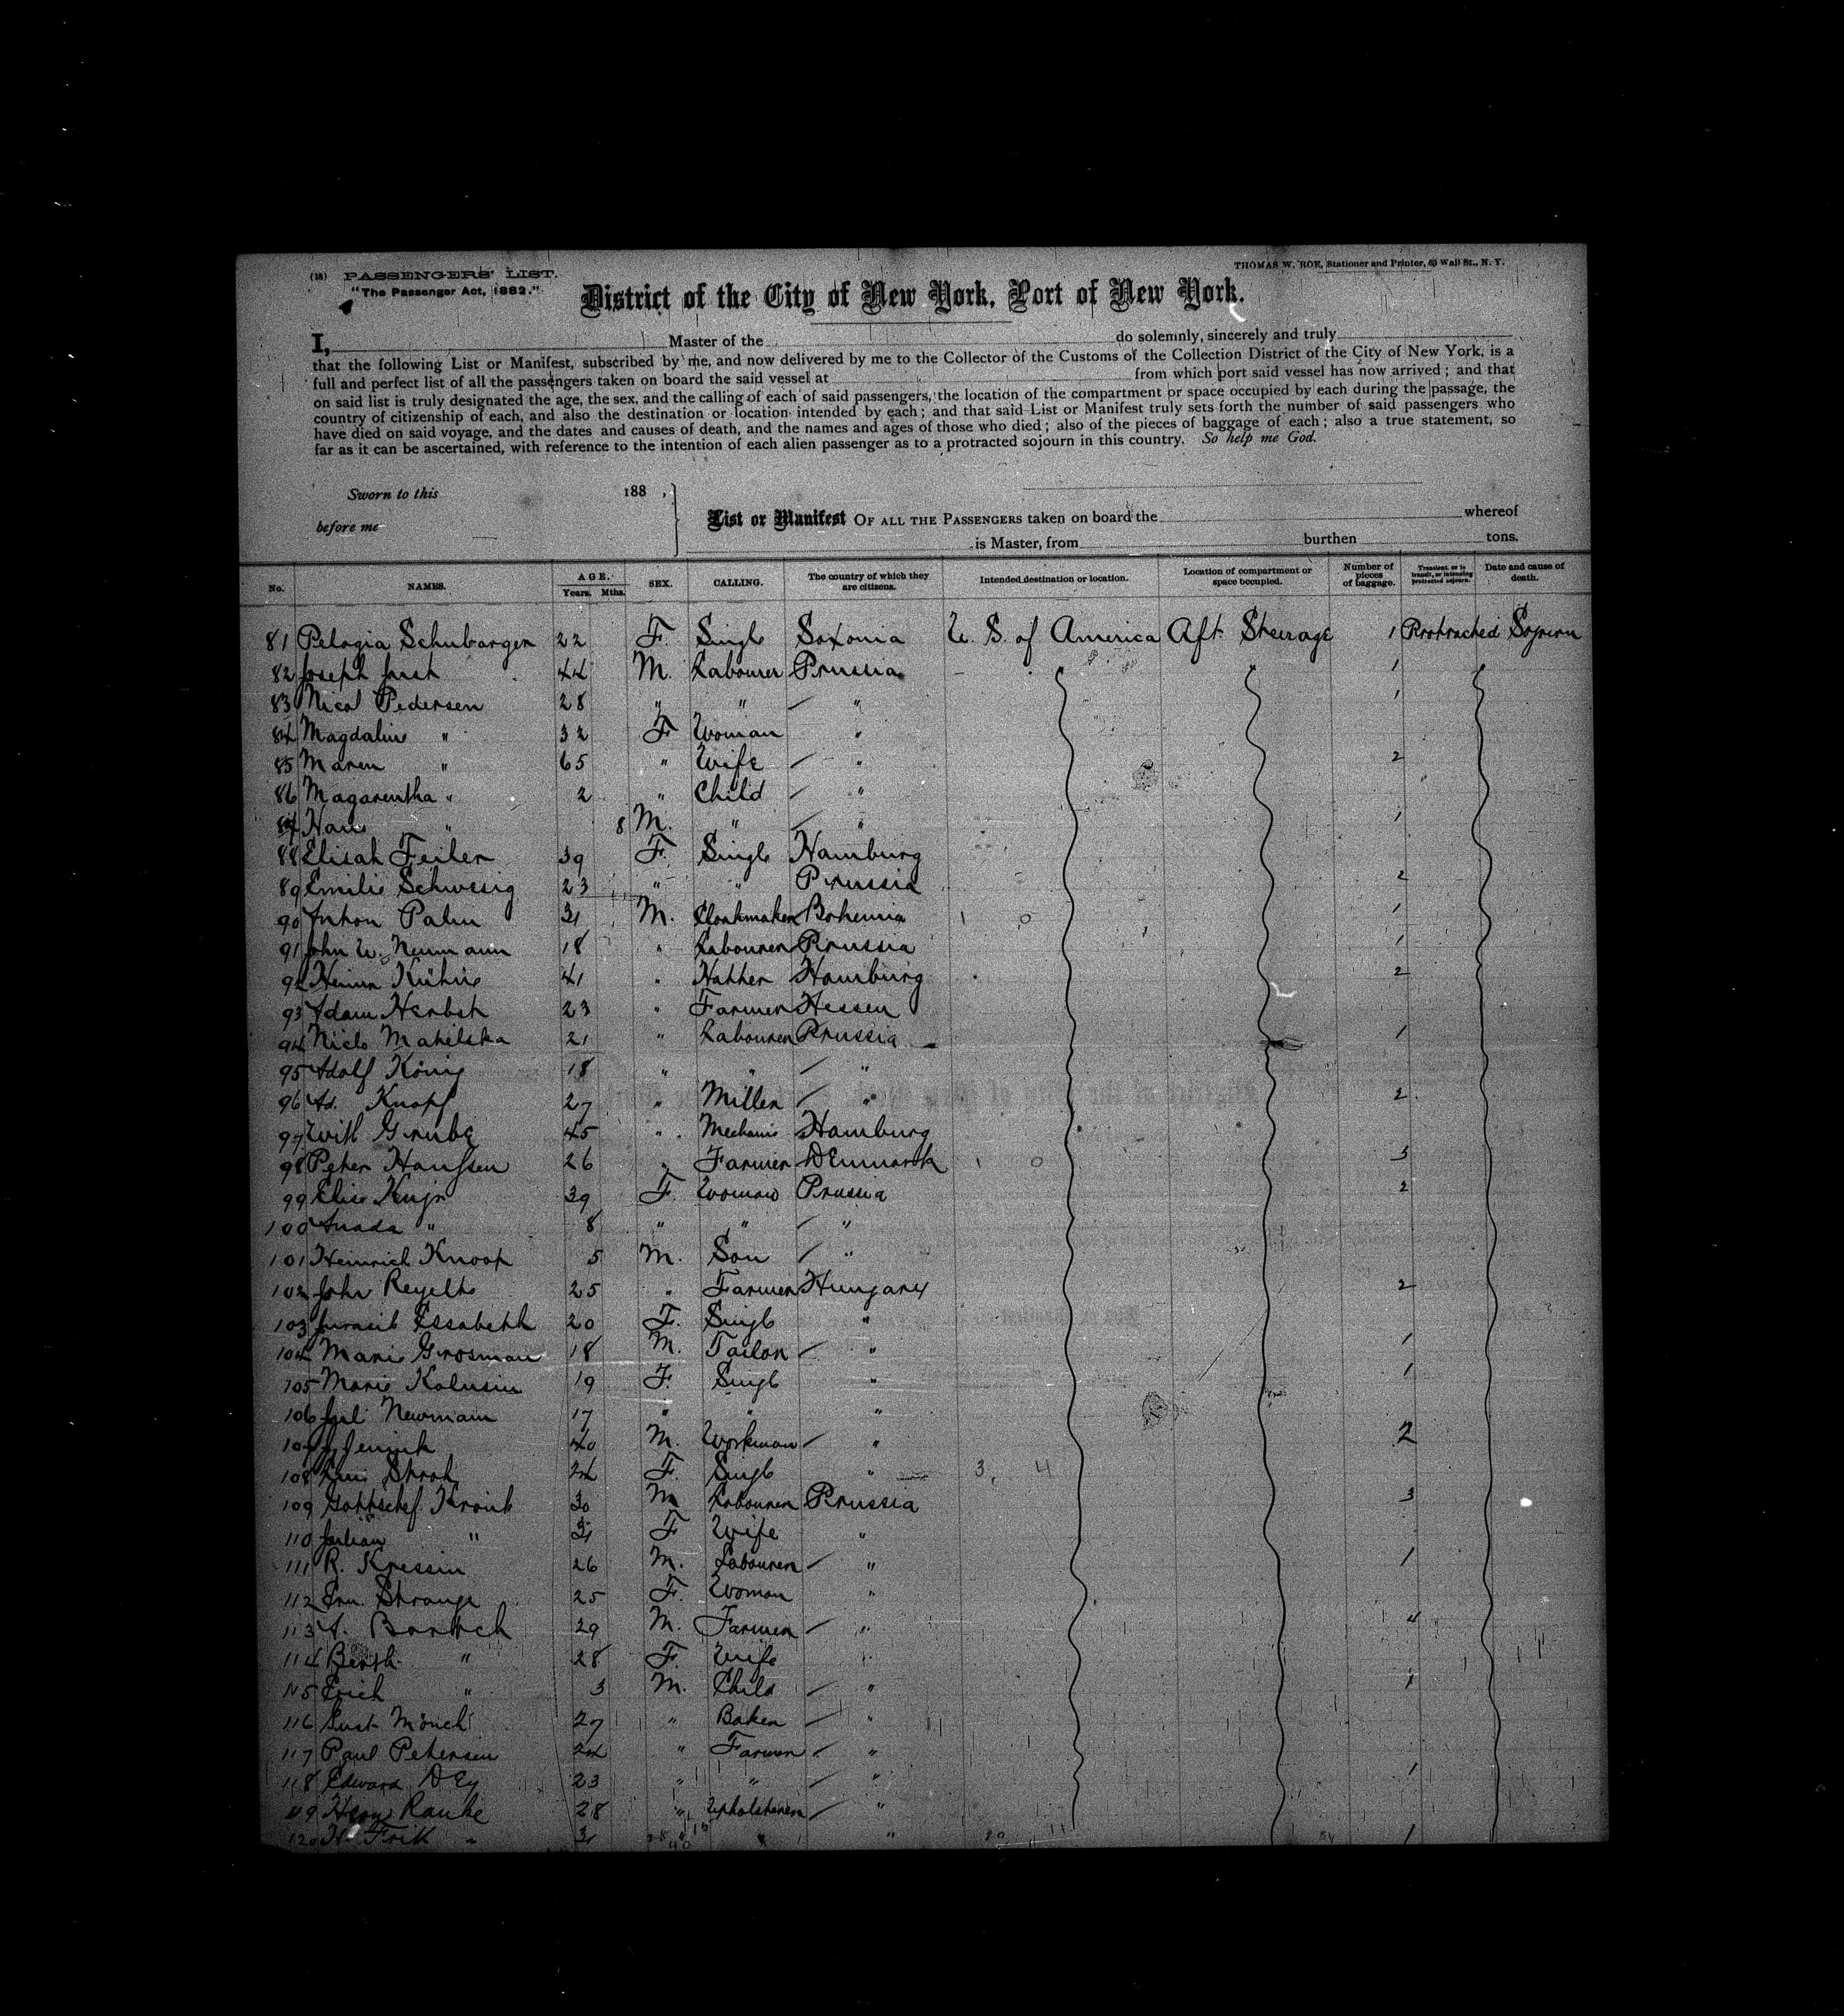 (18) PASSENGERS' LIST.
"The Passenger Act, 1882."
THOMAS W. ROE, Stationer and Printer, 63 Wall St., N. Y.
District of the City of New York, Port of New York.
I, Master of the do solemnly, sincerely and truly
that the following List or Manifest, subscribed by me, and now delivered by me to the Collector of the Customs of the Collection District of the City of New York, is a
full and perfect list of all the passengers taken on board the said vessel at from which port said vessel has now arrived; and that
on said list is truly designated the age, the sex, and the calling of each of said passengers, the location of the compartment or space occupied by each during the passage, the
country of citizenship of each, and also the destination or location intended by each; and that said List or Manifest truly sets forth the number of said passengers who
have died on said voyage, and the dates and causes of death, and the names and ages of those who died; also of the pieces of baggage of each; also a true statement, so
far as it can be ascertained, with reference to the intention of each alien passenger as to a protracted sojourn in this country. So help me God.
Sworn to this 188 ,
before me
List or Manifest OF ALL THE PASSENGERS taken on board the whereof
is Master, from burthen tons.
No. NAMES. AGE. Years. Mths. SEX. CALLING. The country of which they are citizens. Intended destination or location. Location of compartment or space occupied. Number of pieces of baggage. Transient, or in transit, or intending protracted sojourn. Date and cause of death.
81 Pelagia Schubargen 22 F. Single Saxonia U. S. of America Aft. Steerage 1 Protracted Sojourn
82 Joseph Just 44 M. Labourer Prussia 1
83 Nicol Pedersen 28 " " " 1
84 Magdaline " 32 F Woman "
85 Maren " 65 " Wife " 2
86 Magarentha " 2 " Child "
87 Hans " 8 M. " " 1
88 Elisah Feiler 39 F. Single Hamburg
89 Emilie Schwesig 23 " " Prussia 2
90 Anton Palm 31 M. Cloakmaker Bohemia 1
91 John W. Neumann 18 " Labourer Prussia 1
92 Kühne 41 " Hatter Hamburg 2
93 Adam Herbst 23 " Farmer Hessen
94 21 " Labourer Prussia 1
95 Adolf König 18 " " "
96 Ad. Knopf 27 " Miller " 2
97 Will Grube 45 " Mechanic Hamburg
98 Peter Hanssen 26 " Farmer Denmark 3
99 Elise 39 F. Woman Prussia 2
100 " 8 " " "
101 Heinrich Knoop 5 M. Son "
102 John 25 " Farmer Hungary 2
103 20 F. Single "
104 Marie Grosman 18 M. Tailor " 1
105 Marie Kolusin 19 F. Single " 1
106 Juli Newmann 17 " " "
107 40 M. Workman " 2
108 24 F. Single "
109 30 M Labourer Prussia 3
110 Julian " 31 F Wife "
111 R. Kressin 26 M. Labourer " 1
112 25 F. Woman "
113 A. 29 M. Farmer " 4
114 Berth. " 28 F. Wife "
115 Erich " 3 M. Child " 1
116 Gust Mönch 27 " Baker "
117 Paul Petersen 24 " Farmer "
118 Edward 23 " " " 1
119 28 " Upholsterer "
120 H. Frik 31 " " " 1